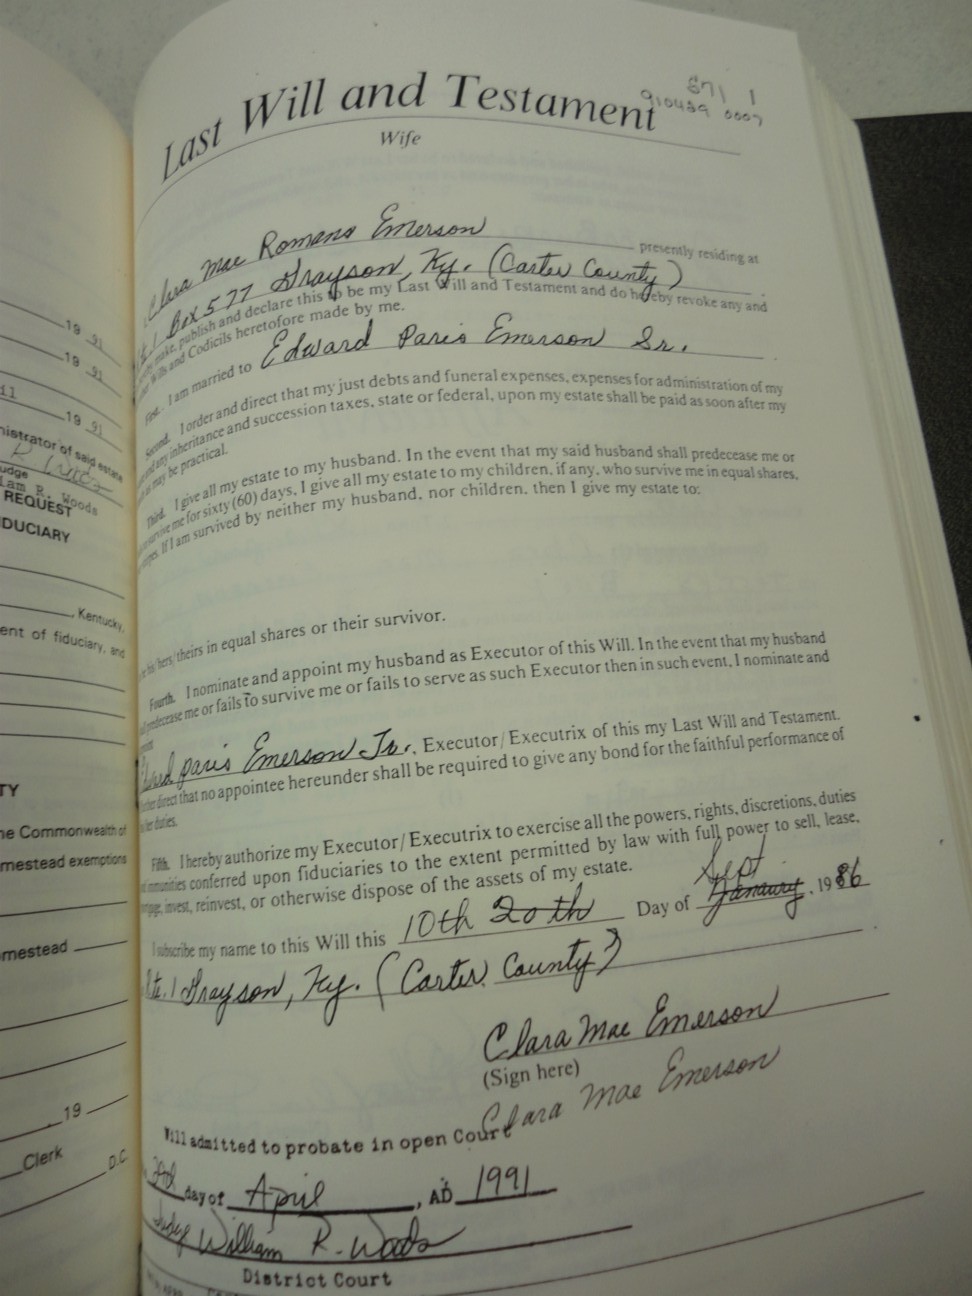 Last Will and Testament
871 1
910489 0007
Wife
Clara Mae Romans Emerson presently residing at
Rt. 1 Box 577 Grayson, Ky. (Carter County).
make, publish and declare this to be my Last Will and Testament and do hereby revoke any and
Wills and Codicils heretofore made by me.
First. I am married to Edward Paris Emerson Sr.
Second. I order and direct that my just debts and funeral expenses, expenses for administration of my
and any inheritance and succession taxes, state or federal, upon my estate shall be paid as soon after my
as may be practical.
Third. I give all my estate to my husband. In the event that my said husband shall predecease me or
survive me for sixty (60) days, I give all my estate to my children, if any, who survive me in equal shares,
If I am survived by neither my husband, nor children, then I give my estate to:
his/hers/theirs in equal shares or their survivor.
Fourth. I nominate and appoint my husband as Executor of this Will. In the event that my husband
predecease me or fails to survive me or fails to serve as such Executor then in such event, I nominate and
Edward paris Emerson Jr., Executor/Executrix of this my Last Will and Testament.
further direct that no appointee hereunder shall be required to give any bond for the faithful performance of
duties.
Fifth. I hereby authorize my Executor/Executrix to exercise all the powers, rights, discretions, duties
immunities conferred upon fiduciaries to the extent permitted by law with full power to sell, lease,
invest, reinvest, or otherwise dispose of the assets of my estate.
Sept
I subscribe my name to this Will this 10th 20th Day of January, 1986
Rt. 1 Grayson, Ky. (Carter County)
Clara Mae Emerson
(Sign here)
Clara Mae Emerson
Will admitted to probate in open Court
day of April, AD 1991
Judge William R. Woods
District Court
19 91
19 91
19 91
administrator of said estate
R Woods
Judge
William R. Woods
REQUEST
FIDUCIARY
, Kentucky,
ent of fiduciary, and
TY
he Commonwealth of
mestead exemptions
mestead
19
Clerk
D.C.